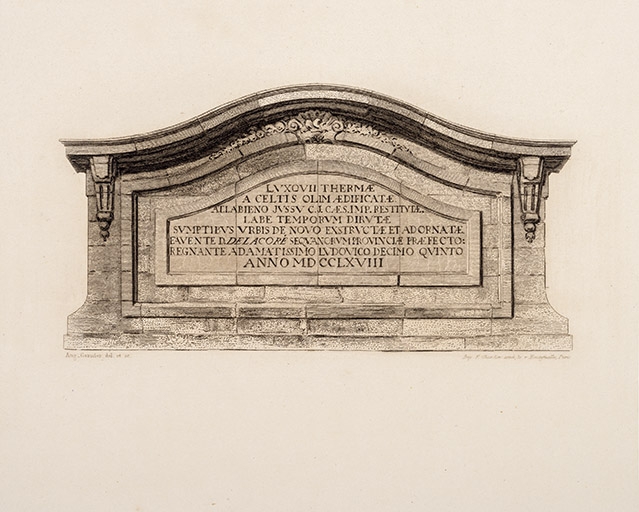 LVXOVII THERMÆ
A CELTIS OLIM ÆDIFICATÆ
A LABIENO JVSSV C.J.CÆS.IMP. RESTITVTÆ.
LABE TEMPORVM DIRVTÆ
SVMPTIBVS VRBIS DE NOVO EXSTRVCTÆ ET ADORNATÆ
FAVENTE D. DELACORÉ SEQVANORVM PROVINCIÆ PRÆFECTO:
REGNANTE ADAMATISSIMO LVDOVICO DECIMO QVINTO
ANNO MDCCLXVIII
del. et sc.
Imp. Paris